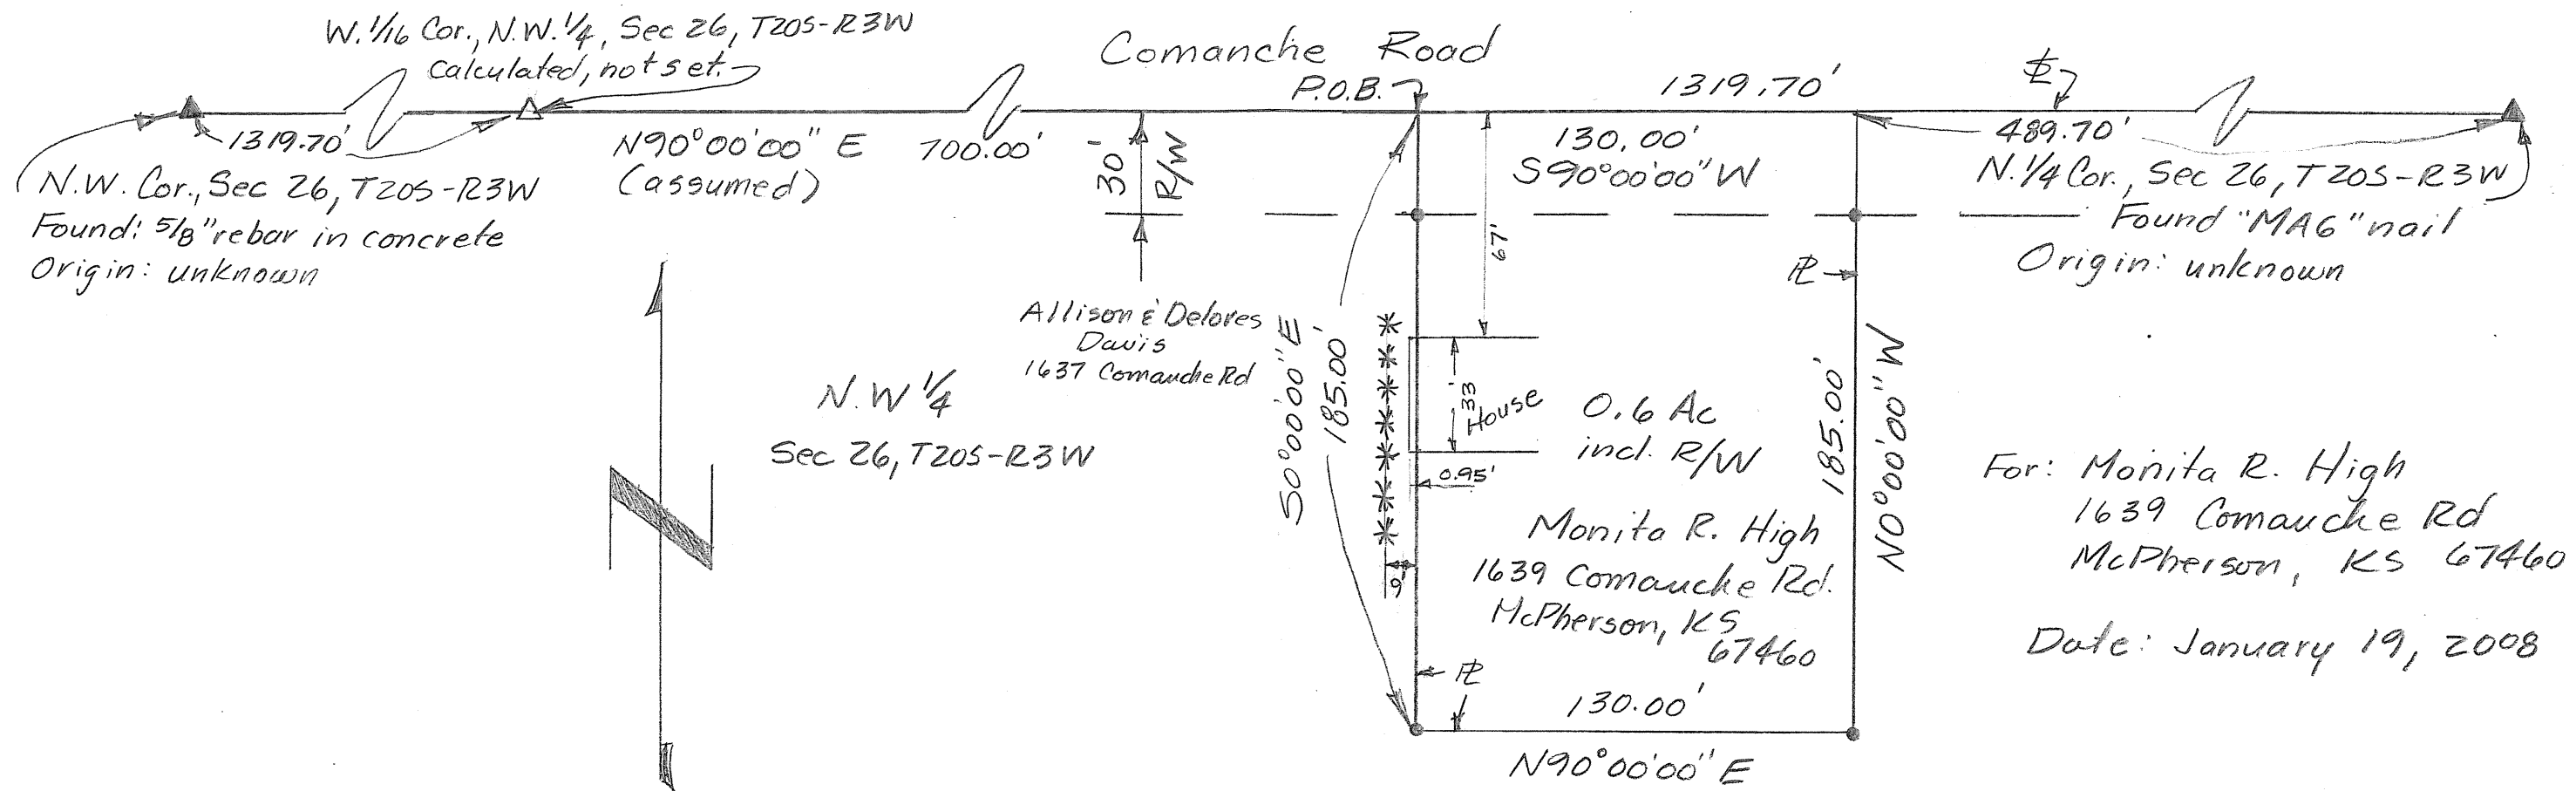 W. 1/16 Cor., N.W. 1/4, Sec 26, T20S-R3W
Calculated, not set.
Comanche Road
P.O.B.
1319.70'
℄
1319.70'
N90°00'00" E
(assumed)
700.00'
30'
R/W
130.00'
S90°00'00" W
489.70'
N.W. Cor., Sec 26, T20S-R3W
Found: 5/8" rebar in concrete
Origin: unknown
N. 1/4 Cor., Sec 26, T20S-R3W
Found "MAG" nail
Origin: unknown
67'
PL
Allison & Delores
Davis
1637 Comanche Rd
S0°00'00" E
185.00'
33'
House
0.95'
6'
0.6 Ac
incl. R/W
185.00'
N0°00'00" W
N.W 1/4
Sec 26, T20S-R3W
N
Monita R. High
1639 Comanche Rd.
McPherson, KS
67460
PL
130.00'
N90°00'00" E
For: Monita R. High
1639 Comanche Rd
McPherson, KS 67460
Date: January 19, 2008